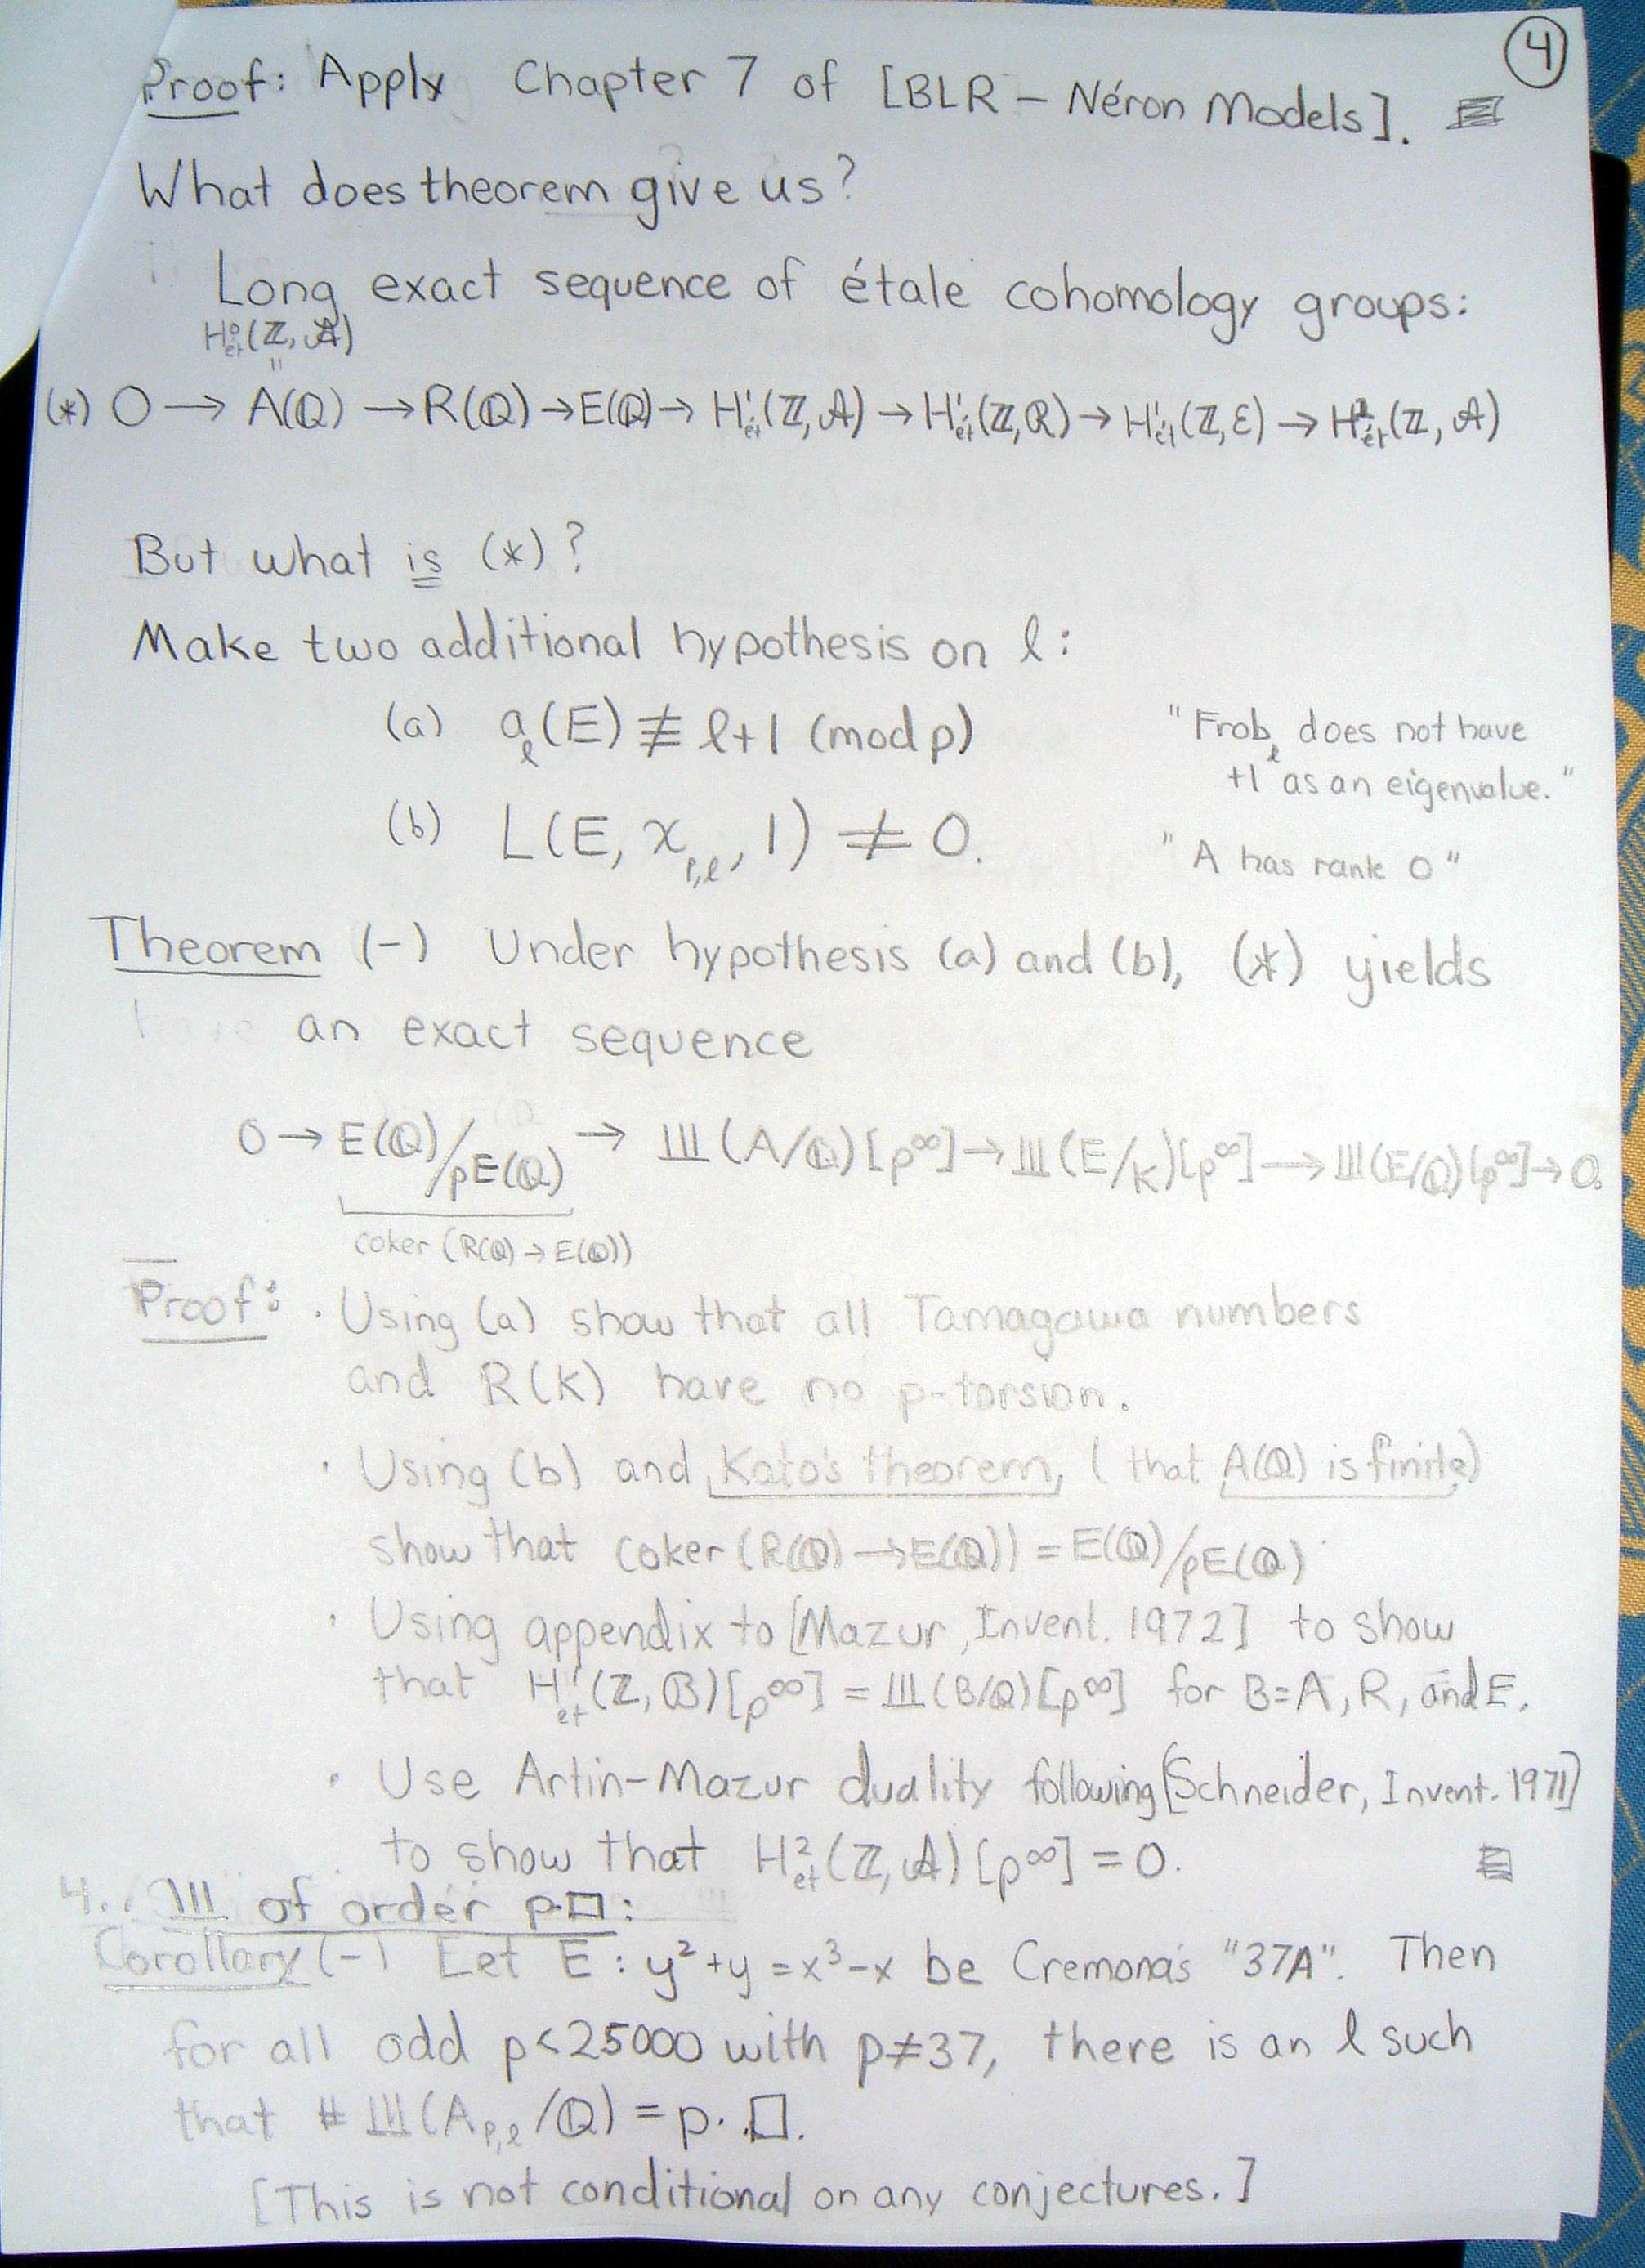 4
Proof: Apply Chapter 7 of [BLR – Néron Models].
What does theorem give us?
Long exact sequence of étale cohomology groups:
H⁰ét(ℤ, 𝒜)
"
(*) 0 → A(ℚ) → R(ℚ) → E(ℚ) → H¹ét(ℤ, 𝒜) → H¹ét(ℤ, ℛ) → H¹ét(ℤ, ℰ) → H²ét(ℤ, 𝒜)
But what is (*)?
Make two additional hypothesis on ℓ:
(a) a_ℓ(E) ≢ ℓ+1 (mod p) "Frob_ℓ does not have
+1 as an eigenvalue."
(b) L(E, χ_p,ℓ, 1) ≠ 0. "A has rank 0"
Theorem (-) Under hypothesis (a) and (b), (*) yields
an exact sequence
0 → E(ℚ)/pE(ℚ) → Ш(A/ℚ)[p^∞] → Ш(E/K)[p^∞] → Ш(E/ℚ)[p^∞] → 0.
coker (R(ℚ) → E(ℚ))
Proof: · Using (a) show that all Tamagawa numbers
and R(K) have no p-torsion.
· Using (b) and Kato's theorem, (that A(ℚ) is finite)
show that coker (R(ℚ) → E(ℚ)) = E(ℚ)/pE(ℚ)
· Using appendix to [Mazur, Invent. 1972] to show
that H¹ét(ℤ, ℬ)[p^∞] = Ш(B/ℚ)[p^∞] for B=A, R, and E.
· Use Artin-Mazur duality following [Schneider, Invent. 1971]
to show that H²ét(ℤ, 𝒜)[p^∞] = 0.
4. Ш of order p·□:
Corollary (-) Let E: y²+y = x³-x be Cremona's "37A". Then
for all odd p<25000 with p≠37, there is an ℓ such
that # Ш(A_p,ℓ/ℚ) = p·□.
[This is not conditional on any conjectures.]